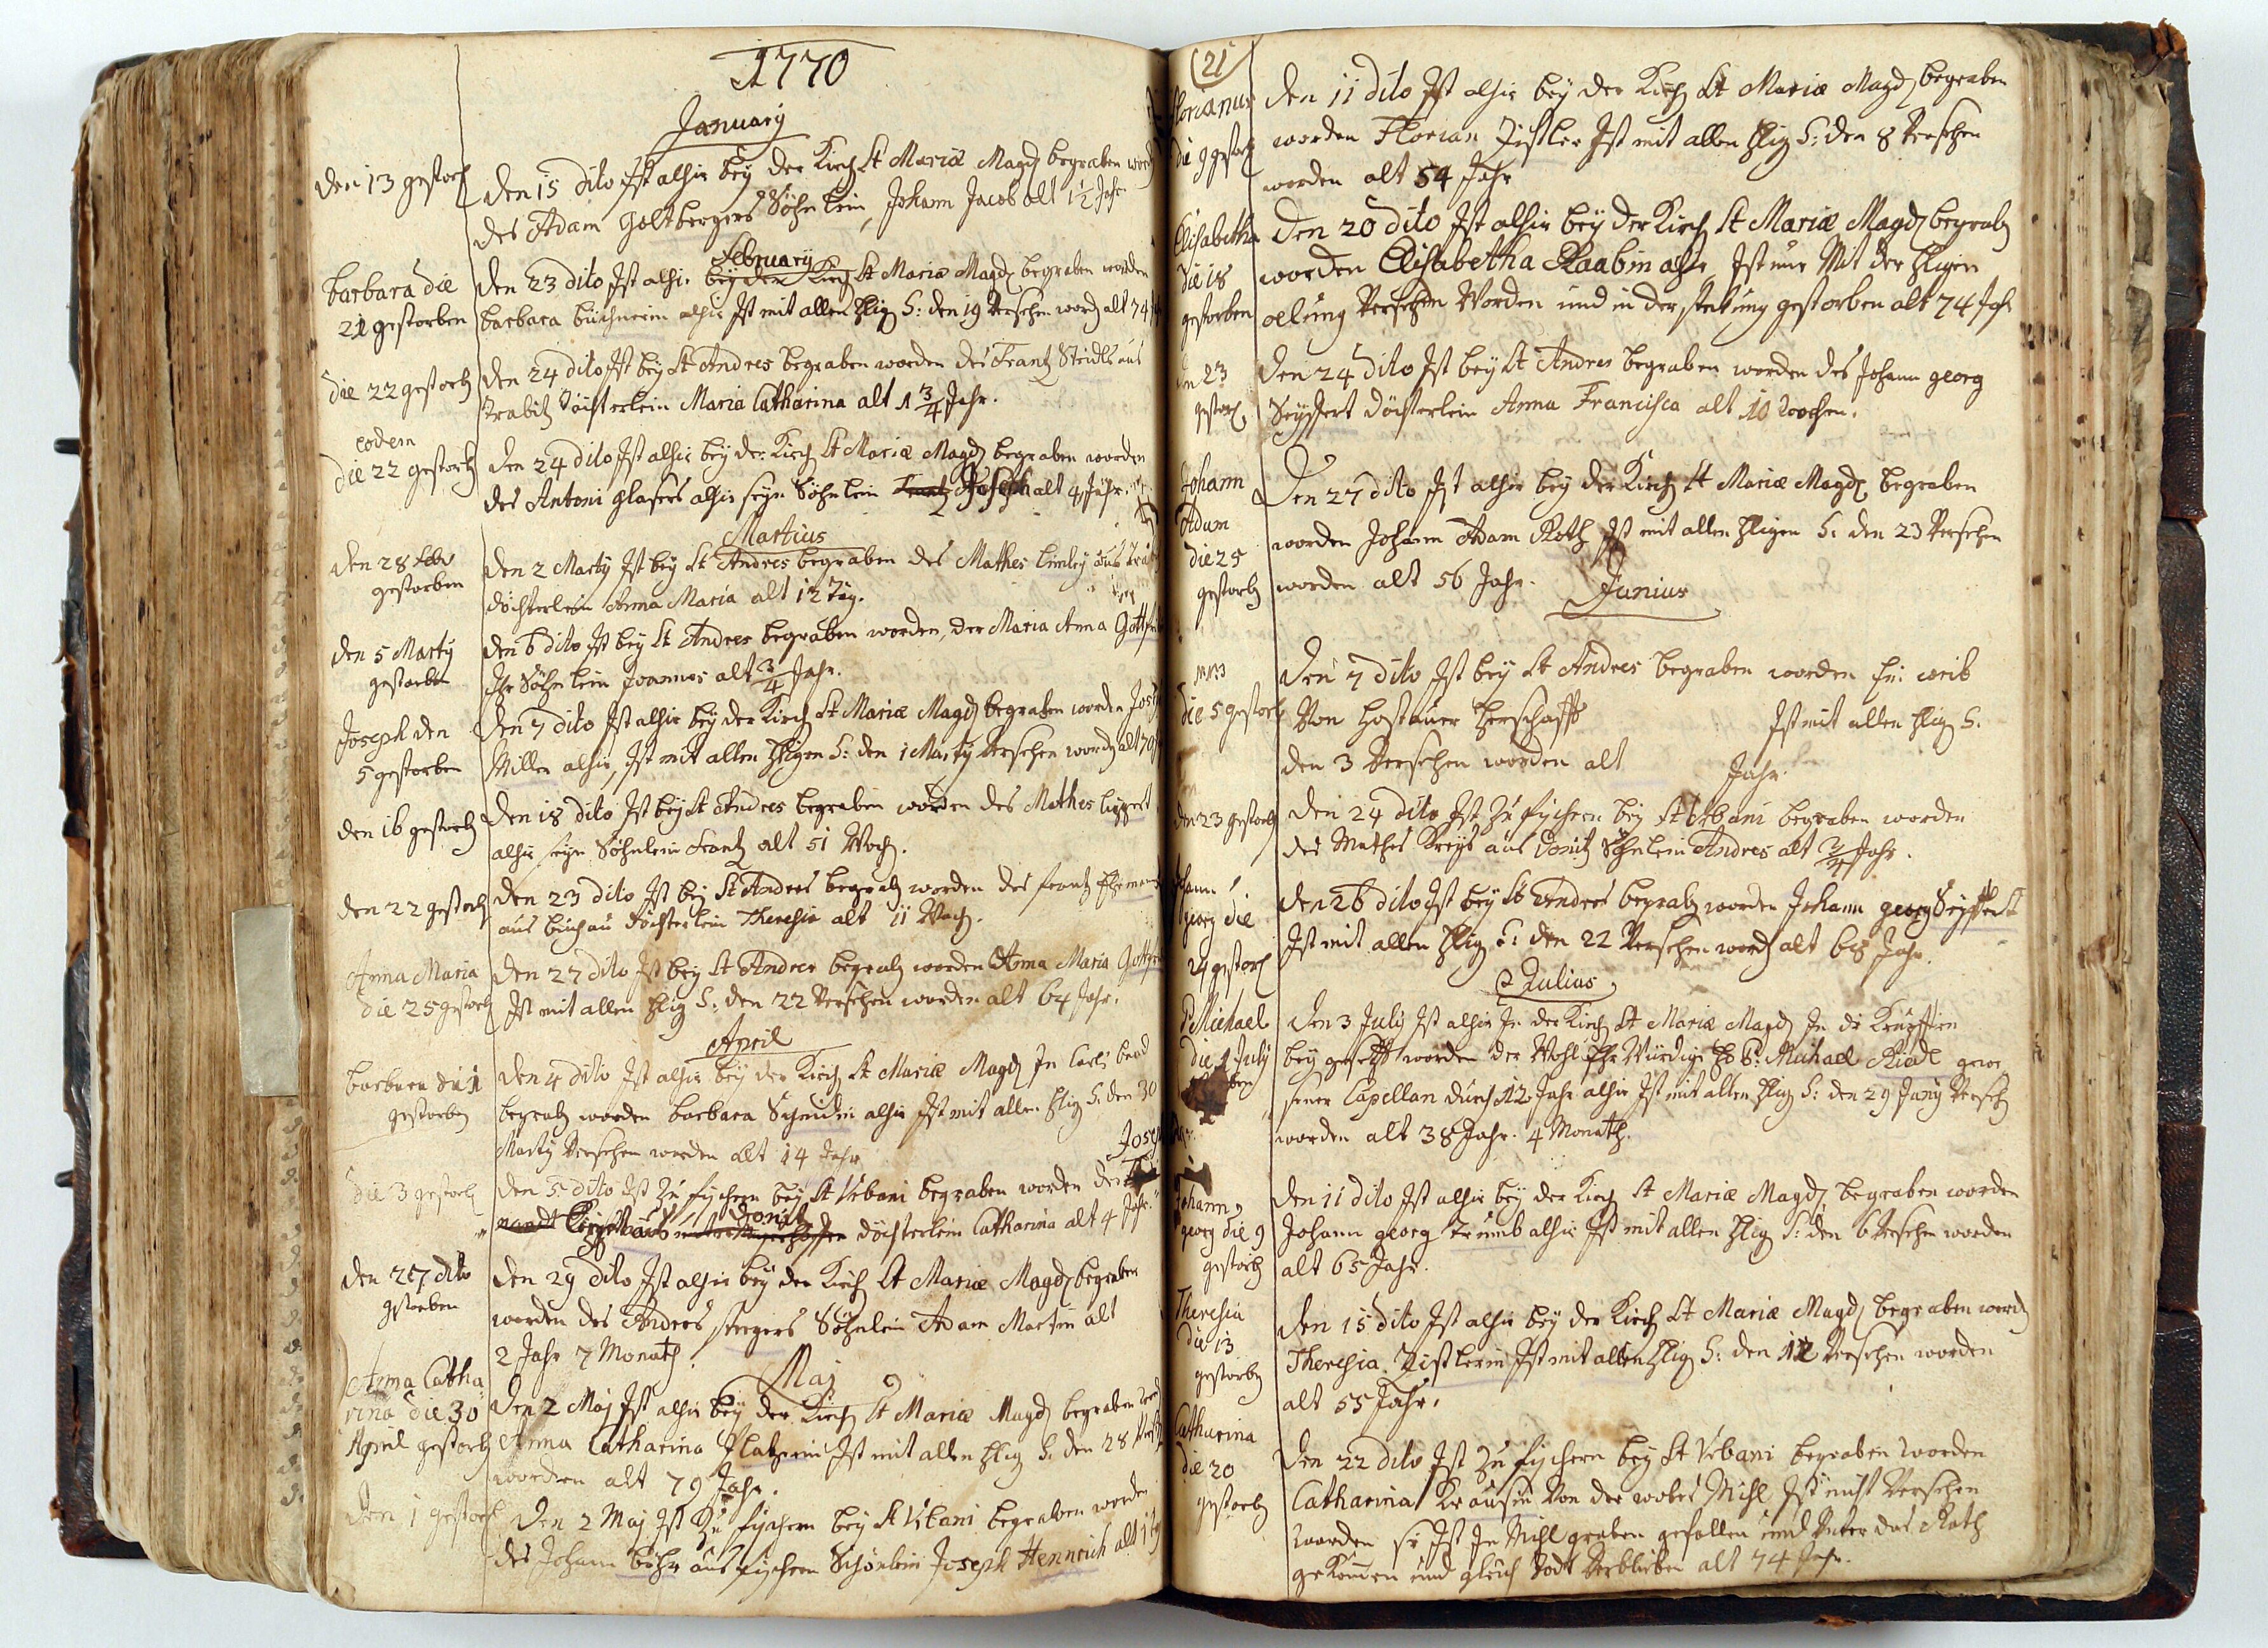 1770
January
den 13 gestorb
den 15 dito Ist alhir bey der Kirch St Mariæ Magd begraben word
des Adam Goltbergers Söhnlein, Johann Jacob alt 1½ Jahr
February
barbara die
21 gestorben
den 23 dito Ist alhir bey der Kirch St Mariæ Magd begraben worden
barbara büchnerin alhir Ist mit allen Hlig S: den 19 versehen word alt 74
die 22 gestorb
den 24 dito Ist bey St Andres begraben worden des Frantz Steidls aus
Trabitz döchterlein Maria Catharina alt 1 3/4 Jahr.
eodem
die 22 gestorb
den 24 dito Ist alhir bey der Kirch St Mariæ Magd begraben worden
des Antoni glasers alhir seyn Söhnlein Frantz Joseph alt 4 Jahr.
Martius
den 28 Febr
gestorben
den 2 Marty Ist bey St Andres begraben des Mathes
döchterlein Anna Maria alt 12 Tag.
den 5 Marty
gestorben
den 6 dito Ist bey St Andres begraben worden, der Maria Anna
Ihr Söhnlein Joannes alt 3/4 Jahr.
Joseph den
5 gestorben
den 7 dito Ist alhir bey der Kirch St Mariæ Magd begraben worden
Miller alhir, Ist mit allen Hligen S: den 1 Marty versehen word alt 70
den 16 gestorb
den 18 dito Ist bey St Andres begraben worden des Mathes
alhir seyn Söhnlein Frantz alt 51 Woch.
den 22 gestorb
den 23 dito Ist bey St Andres begrab worden des Frantz
aus buchau döchterlein Theresia alt 11 Woch.
Anna Maria
die 25 gestorb
den 27 dito Ist bey St Andres begrab worden Anna Maria
Ist mit allen Hlig S: den 22 versehen worden alt 64 Jahr.
April
barbara die 1
gestorben
den 4 dito Ist alhir bey der Kirch St Mariæ Magd In
begrab worden barbara Schmidin alhir Ist mit allen Hlig S: den 30
Marty versehen worden alt 14 Jahr
die 3 gestorb
den 5 dito Ist zu fischern bey St Urbani begraben worden der
Donitz
döchterlein Catharina alt 4 Jahr.
den 27 dito
gestorben
den 29 dito Ist alhir bey der Kirch St Mariæ Magd begraben
worden des Andres stegers Söhnlein Adam Martin alt
2 Jahr 7 Monath.
Maj
Anna Catha
rina die 30
April gestorb
den 2 Maj Ist alhir bey der Kirch St Mariæ Magd begraben word
Anna Catharina Ist mit allen Hlig S. den 28
worden alt 79 Jahr.
den 1 gestorb
den 2 Maj Ist Zu fischern bey St Urbani begraben worden
des Johann aus fischern Söhnlein Joseph Hennrich alt
(21
Florianus
die 9 gestorb
den 11 dito Ist alhir bey der Kirch St Mariæ Magd begraben
worden Florian Zistler Ist mit allen Hlig S: den 8 versehen
worden alt 54 Jahr
Elisabetha
die 18
gestorben
Den 20 dito Ist alhir bey der Kirch St Mariæ Magd begrab
worden Elisabetha Raabin alhir, Ist nur Mit der Hligen
oelung versehen Worden und in der gestorben alt 74 Jahr
23
gestorb
Den 24 dito Ist bey St Andres begraben worden des Johann georg
Seyffert döchterlein Anna Francisca alt 10 wochen.
Johann
Adam
die 25
gestorb
Den 27 dito Ist alhir bey der Kirch St Mariæ Magd begraben
worden Johann Adam Roth Ist mit allen Hligen S: den 23 versehen
worden alt 56 Jahr.
Junius
die 5 gestorb
Den 7 dito Ist bey St Andres begraben worden Ein weib
Von hostauer Herschafft Ist mit allen Hlig S.
den 3 versehen worden alt Jahr
den 23 gestorb
Den 24 dito Ist Zu fischern bey St Urbani begraben worden
des Mathes Kreys aus Donitz Söhnlein Andres alt Jahr.
Johann
georg die
24 gestorb
den 26 dito Ist bey St Andres begrab worden Johann georg Seyffert
Ist mit allen Hlig S: den 22 versehen word alt 68 Jahr.
Julius
P Michael
die 1 July
den 3 July Ist alhir In der Kirch St Mariæ Magd In die Krufften
bey gesetzt worden der Wohl Ehr Würdige H P: Michael Riedl gewe
sener Capellan durch 12 Jahr alhir Ist mit allen Hlig S: den 29 Juny verseh
worden alt 38 Jahr. 4 Monath.
Johann
georg die 9
gestorb
den 11 dito Ist alhir bey der Kirch St Mariæ Magd begraben worden
Johann georg Trumb alhir Ist mit allen Hlig S: den 6 versehen worden
alt 65 Jahr.
Theresia
die 13
gestorben
den 15 dito Ist alhir bey der Kirch St Mariæ Magd begraben word
Theresia Zistlerin Ist mit allen Hlig S: den 12 versehen worden
alt 55 Jahr.
Catharina
die 20
gestorb
den 22 dito Ist Zu fischern bey St Urbani begraben worden
Catharina Krausin Von der Mihl Ist nicht versehen
worden sie Ist In Mihl graben gefallen und unter das Rath
gekomen und gleich Todt verblieben alt 74 Jahr.